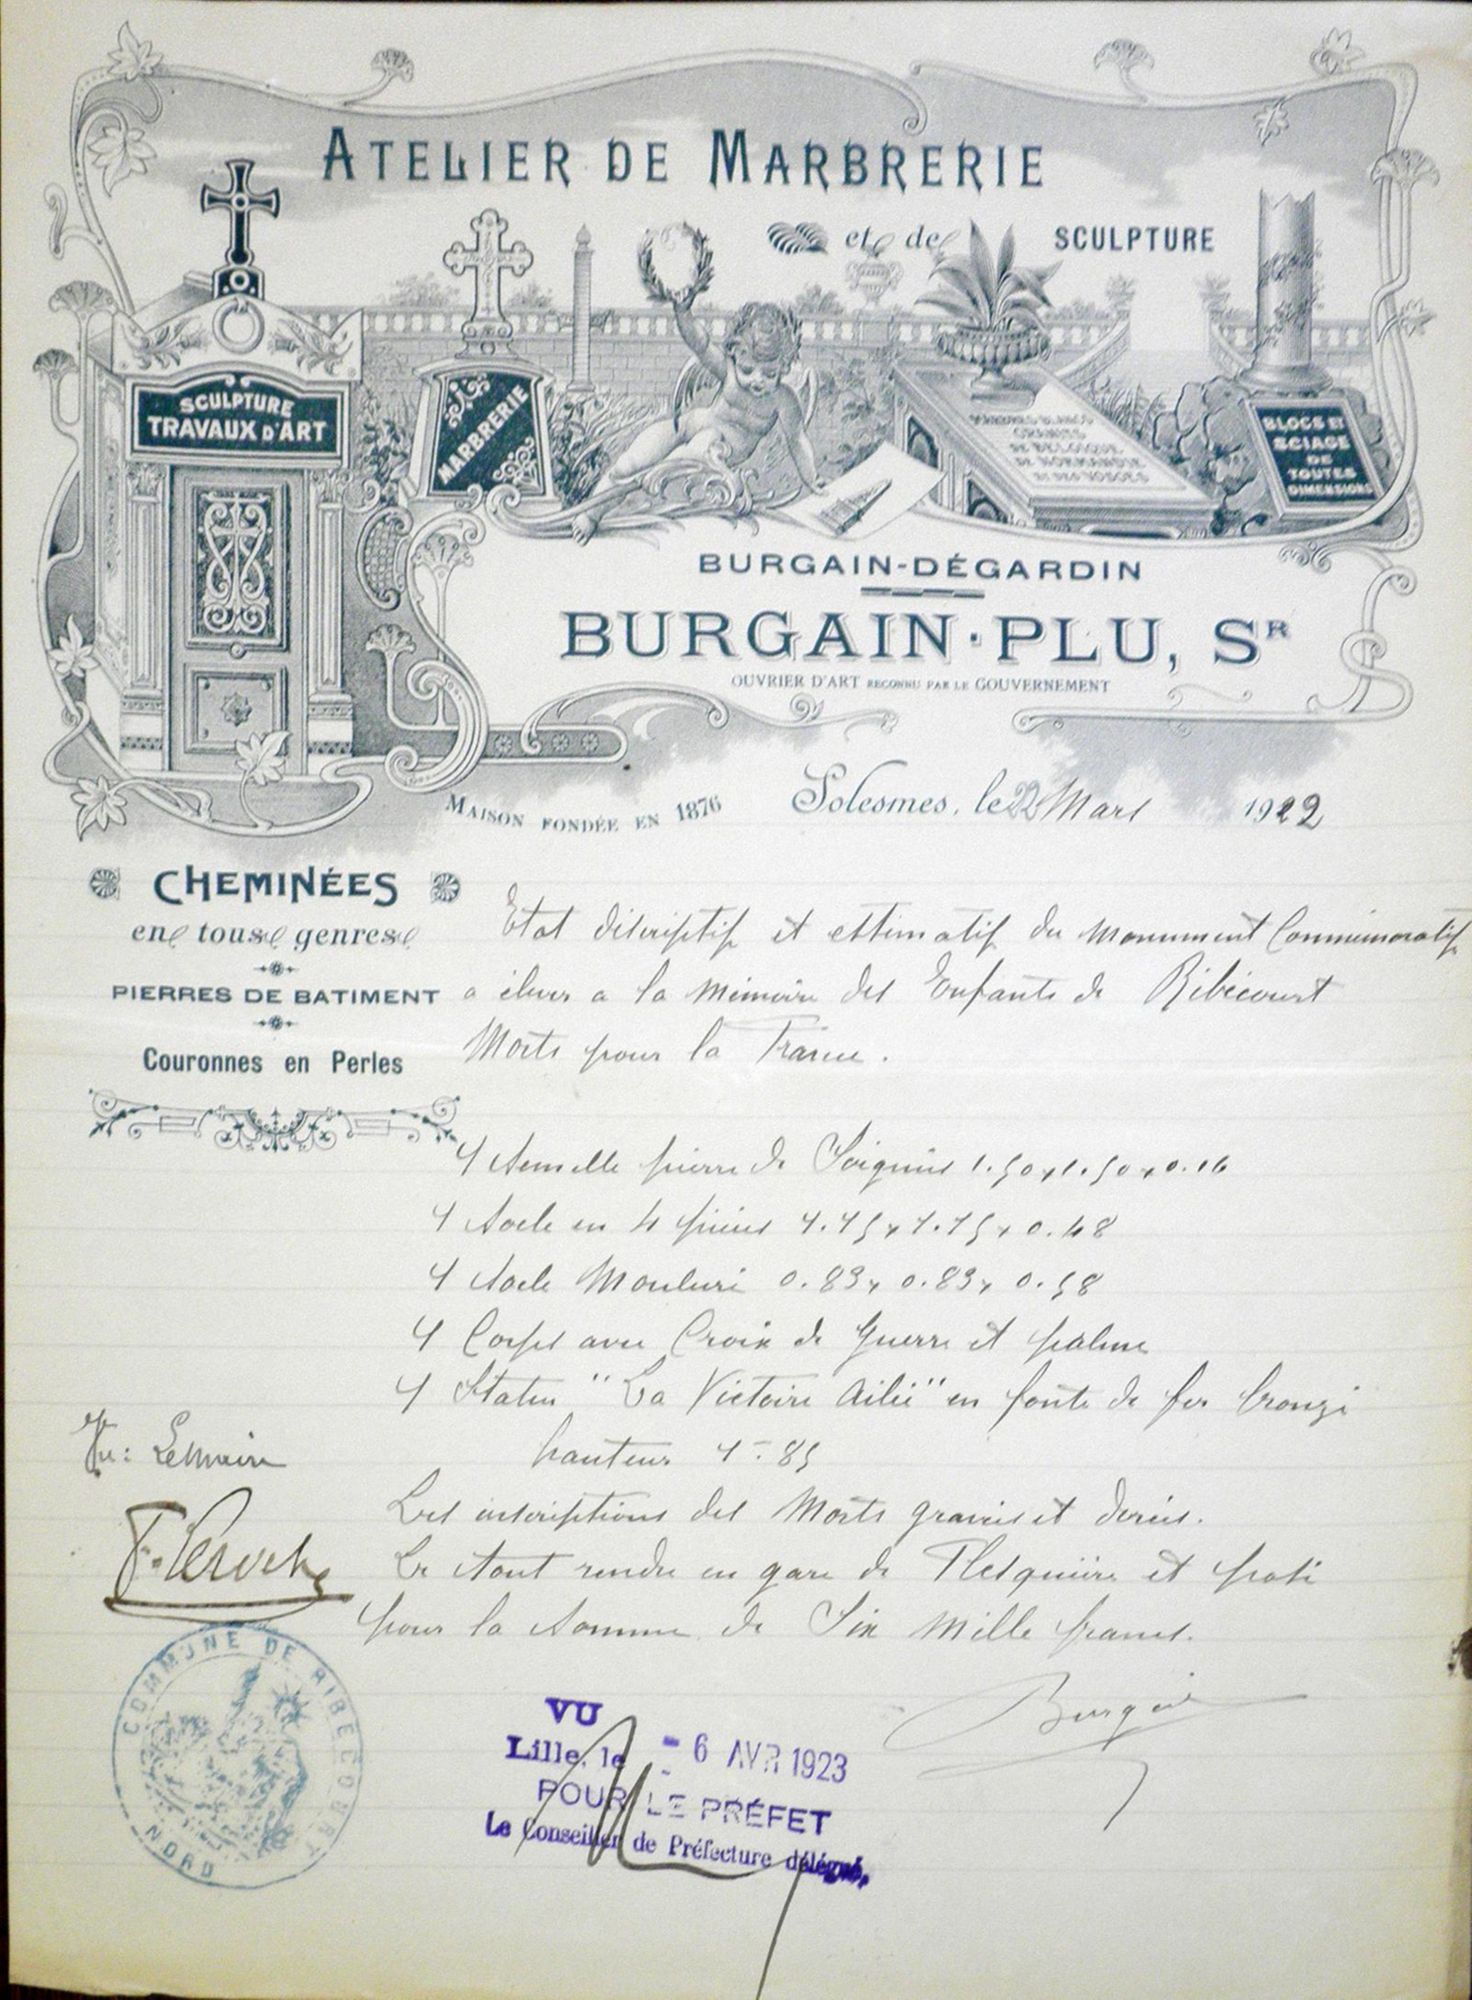 ATELIER DE MARBRERIE
et de SCULPTURE
SCULPTURE
TRAVAUX D'ART
MARBRERIE
MARBRES BLANCS
GRANITS
DE BELGIQUE
DE NORMANDIE
ET DES VOSGES
BLOCS ET
SCIAGE
DE
TOUTES
DIMENSIONS
BURGAIN-DÉGARDIN
BURGAIN·PLU, SR
OUVRIER D'ART RECONNU PAR LE GOUVERNEMENT
MAISON FONDÉE EN 1876
Solesmes, le 22 Mars 1922
CHEMINÉES
en tous genres
PIERRES DE BATIMENT
Couronnes en Perles
Etat déscriptif et estimatif du monument Commémoratif
a élever a la mémoire des Enfants de Ribécourt
Morts pour la France.
1 semelle pierre de Soignies 1.50 x 1.50 x 0.16
1 socle en 4 pièces 1.15 x 1.15 x 0.48
1 socle Mouluré 0.83 x 0.83 x 0.58
1 Corps avec Croix de Guerre et palme
1 Statue "La Victoire Ailée" en fonte de fer bronzé
hauteur 1m 85
Les inscriptions des Morts gravées et dorées.
Le tout rendu en gare de Flesquières et posé
pour la somme de Six Mille francs.
Burgain
Vu: Le Maire
COMMUNE DE RIBECOURT
NORD
VU
Lille, le - 6 AVR 1923
POUR LE PRÉFET
Le Conseiller de Préfecture délégué,